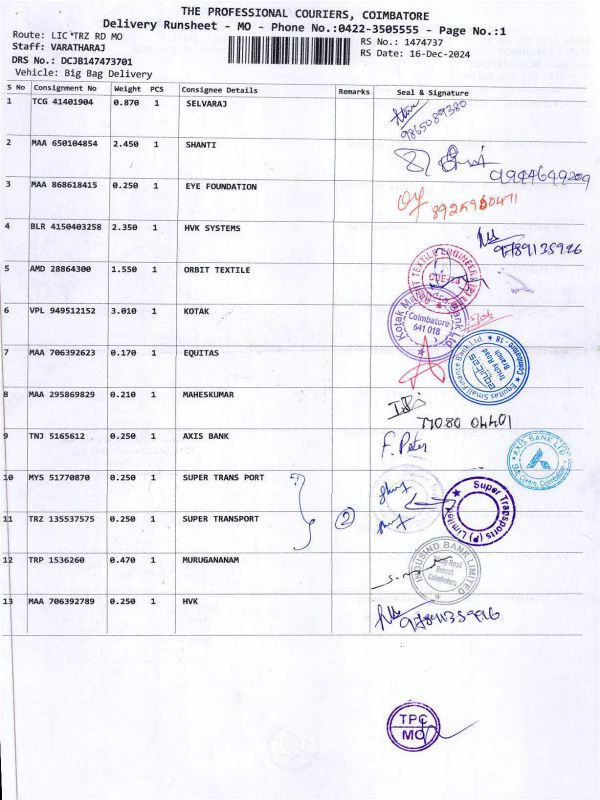 THE PROFESSIONAL COURIERS, COIMBATORE
Delivery Runsheet - MO - Phone No.:0422-3505555 - Page No.:1
Route: LIC *TRZ RD MO
RS No.: 1474737
Staff: VARATHARAJ
RS Date: 16-Dec-2024
DRS No.: DCJB147473701
Vehicle: Big Bag Delivery
S No Consignment No Weight PCS Consignee Details Remarks Seal & Signature
1 TCG 41401904 0.870 1 SELVARAJ
9865089380
2 MAA 650104854 2.450 1 SHANTI
9944649209
3 MAA 868618415 0.250 1 EYE FOUNDATION
4 BLR 4150403258 2.350 1 HVK SYSTEMS
9789135926
5 AMD 28864300 1.550 1 ORBIT TEXTILE
6 VPL 949512152 3.010 1 KOTAK
Coimbatore
641 018
7 MAA 706392623 0.170 1 EQUITAS
Equitas Small Finance Bank Ltd. Coimbatore - 18
EQUITAS
Trichy Road
Branch
8 MAA 295869829 0.210 1 MAHESKUMAR
71080 04401
9 TNJ 5165612 0.250 1 AXIS BANK
F. Peter
AXIS BANK LTD
10 MYS 51770870 0.250 1 SUPER TRANS PORT
Super Transports (P) Limited
11 TRZ 135537575 0.250 1 SUPER TRANSPORT 2
12 TRP 1536260 0.470 1 MURUGANANAM
INDUSIND BANK LIMITED
Branch
Coimbatore
13 MAA 706392789 0.250 1 HVK
TPC
MO